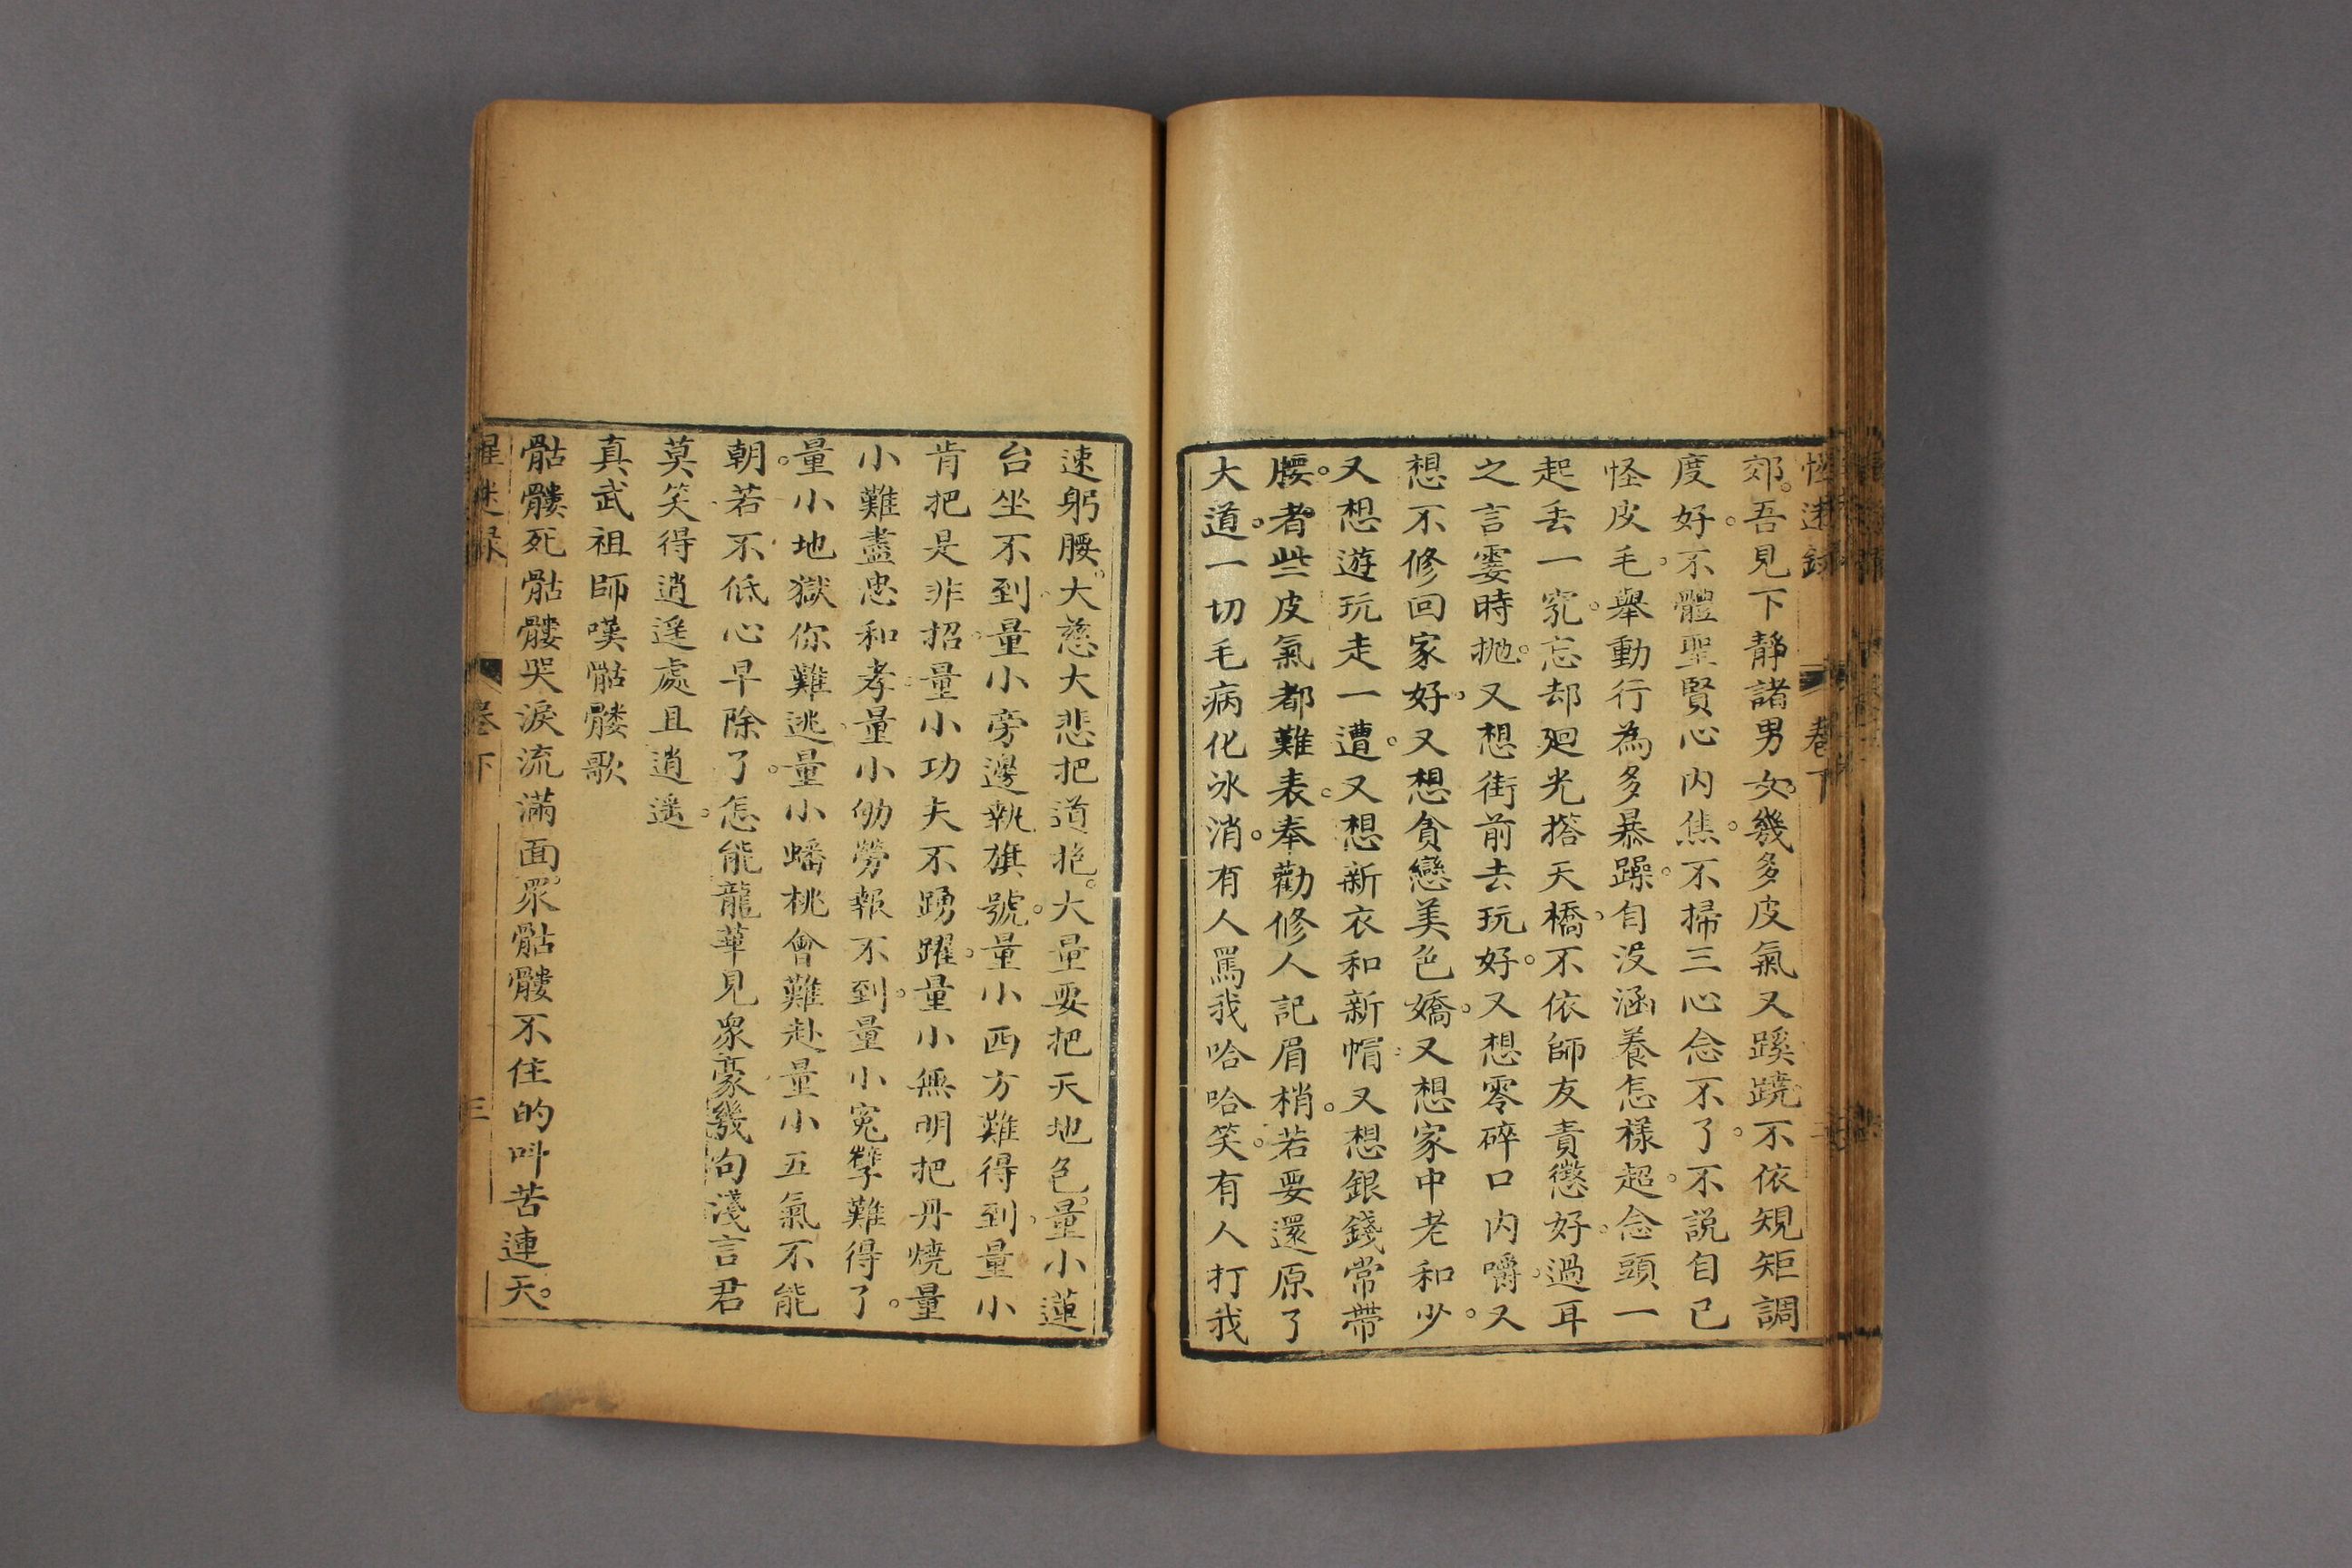 郊。吾見下靜諸男女。幾多皮氣又蹊蹺。不依規矩調
度好。不體聖賢心內焦。不掃三心念不了。不說自己
怪皮毛。舉動行為多暴躁。自沒涵養怎樣超。念頭一
起丢一究。忘却廻光搭天橋。不依師友責懲好。過耳
之言霎時拋。又想街前去玩好。又想零碎口內嚼。又
想不修回家好。又想貪戀美色嬌。又想家中老和少。
又想遊玩走一遭。又想新衣和新帽。又想銀錢常帶
腰。者些皮氣都難表。奉勸修人記眉梢。若要還原了
大道。一切毛病化冰消。有人罵我哈哈笑。有人打我
速躬腰。大慈大悲把道抱。大量要把天地包。量小蓮
台坐不到。量小旁邊執旗號。量小西方難得到。量小
肯把是非招。量小功夫不踴躍。量小無明把丹燒。量
小難盡忠和孝。量小劬勞報不到。量小冤孽難得了。
量小地獄你難逃。量小蟠桃會難赴。量小五氣不能
朝。若不低心早除了。怎能龍華見眾豪。幾句淺言君
莫笑。得逍遥處且逍遥。
真武祖師嘆骷髏歌
骷髏死骷髏哭淚流滿面。眾骷髏不住的叫苦連天。
醒迷錄 卷下 三